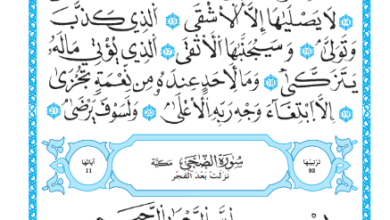 ١٤ لَا يَصْلَىٰهَا إِلَّا الْأَشْقَى ١٥ الَّذِي كَذَّبَ
وَتَوَلَّىٰ ١٦ وَسَيُجَنَّبُهَا الْأَتْقَى ١٧ الَّذِي يُؤْتِي مَالَهُ
يَتَزَكَّىٰ ١٨ وَمَا لِأَحَدٍ عِندَهُ مِن نِّعْمَةٍ تُجْزَىٰ
١٩ إِلَّا ابْتِغَاءَ وَجْهِ رَبِّهِ الْأَعْلَىٰ ٢٠ وَلَسَوْفَ يَرْضَىٰ ٢١
ترتيبها 93
سُورَةُ الضُّحَىٰ مَكيَّة
نزلت بعد الفجر
آياتها 11